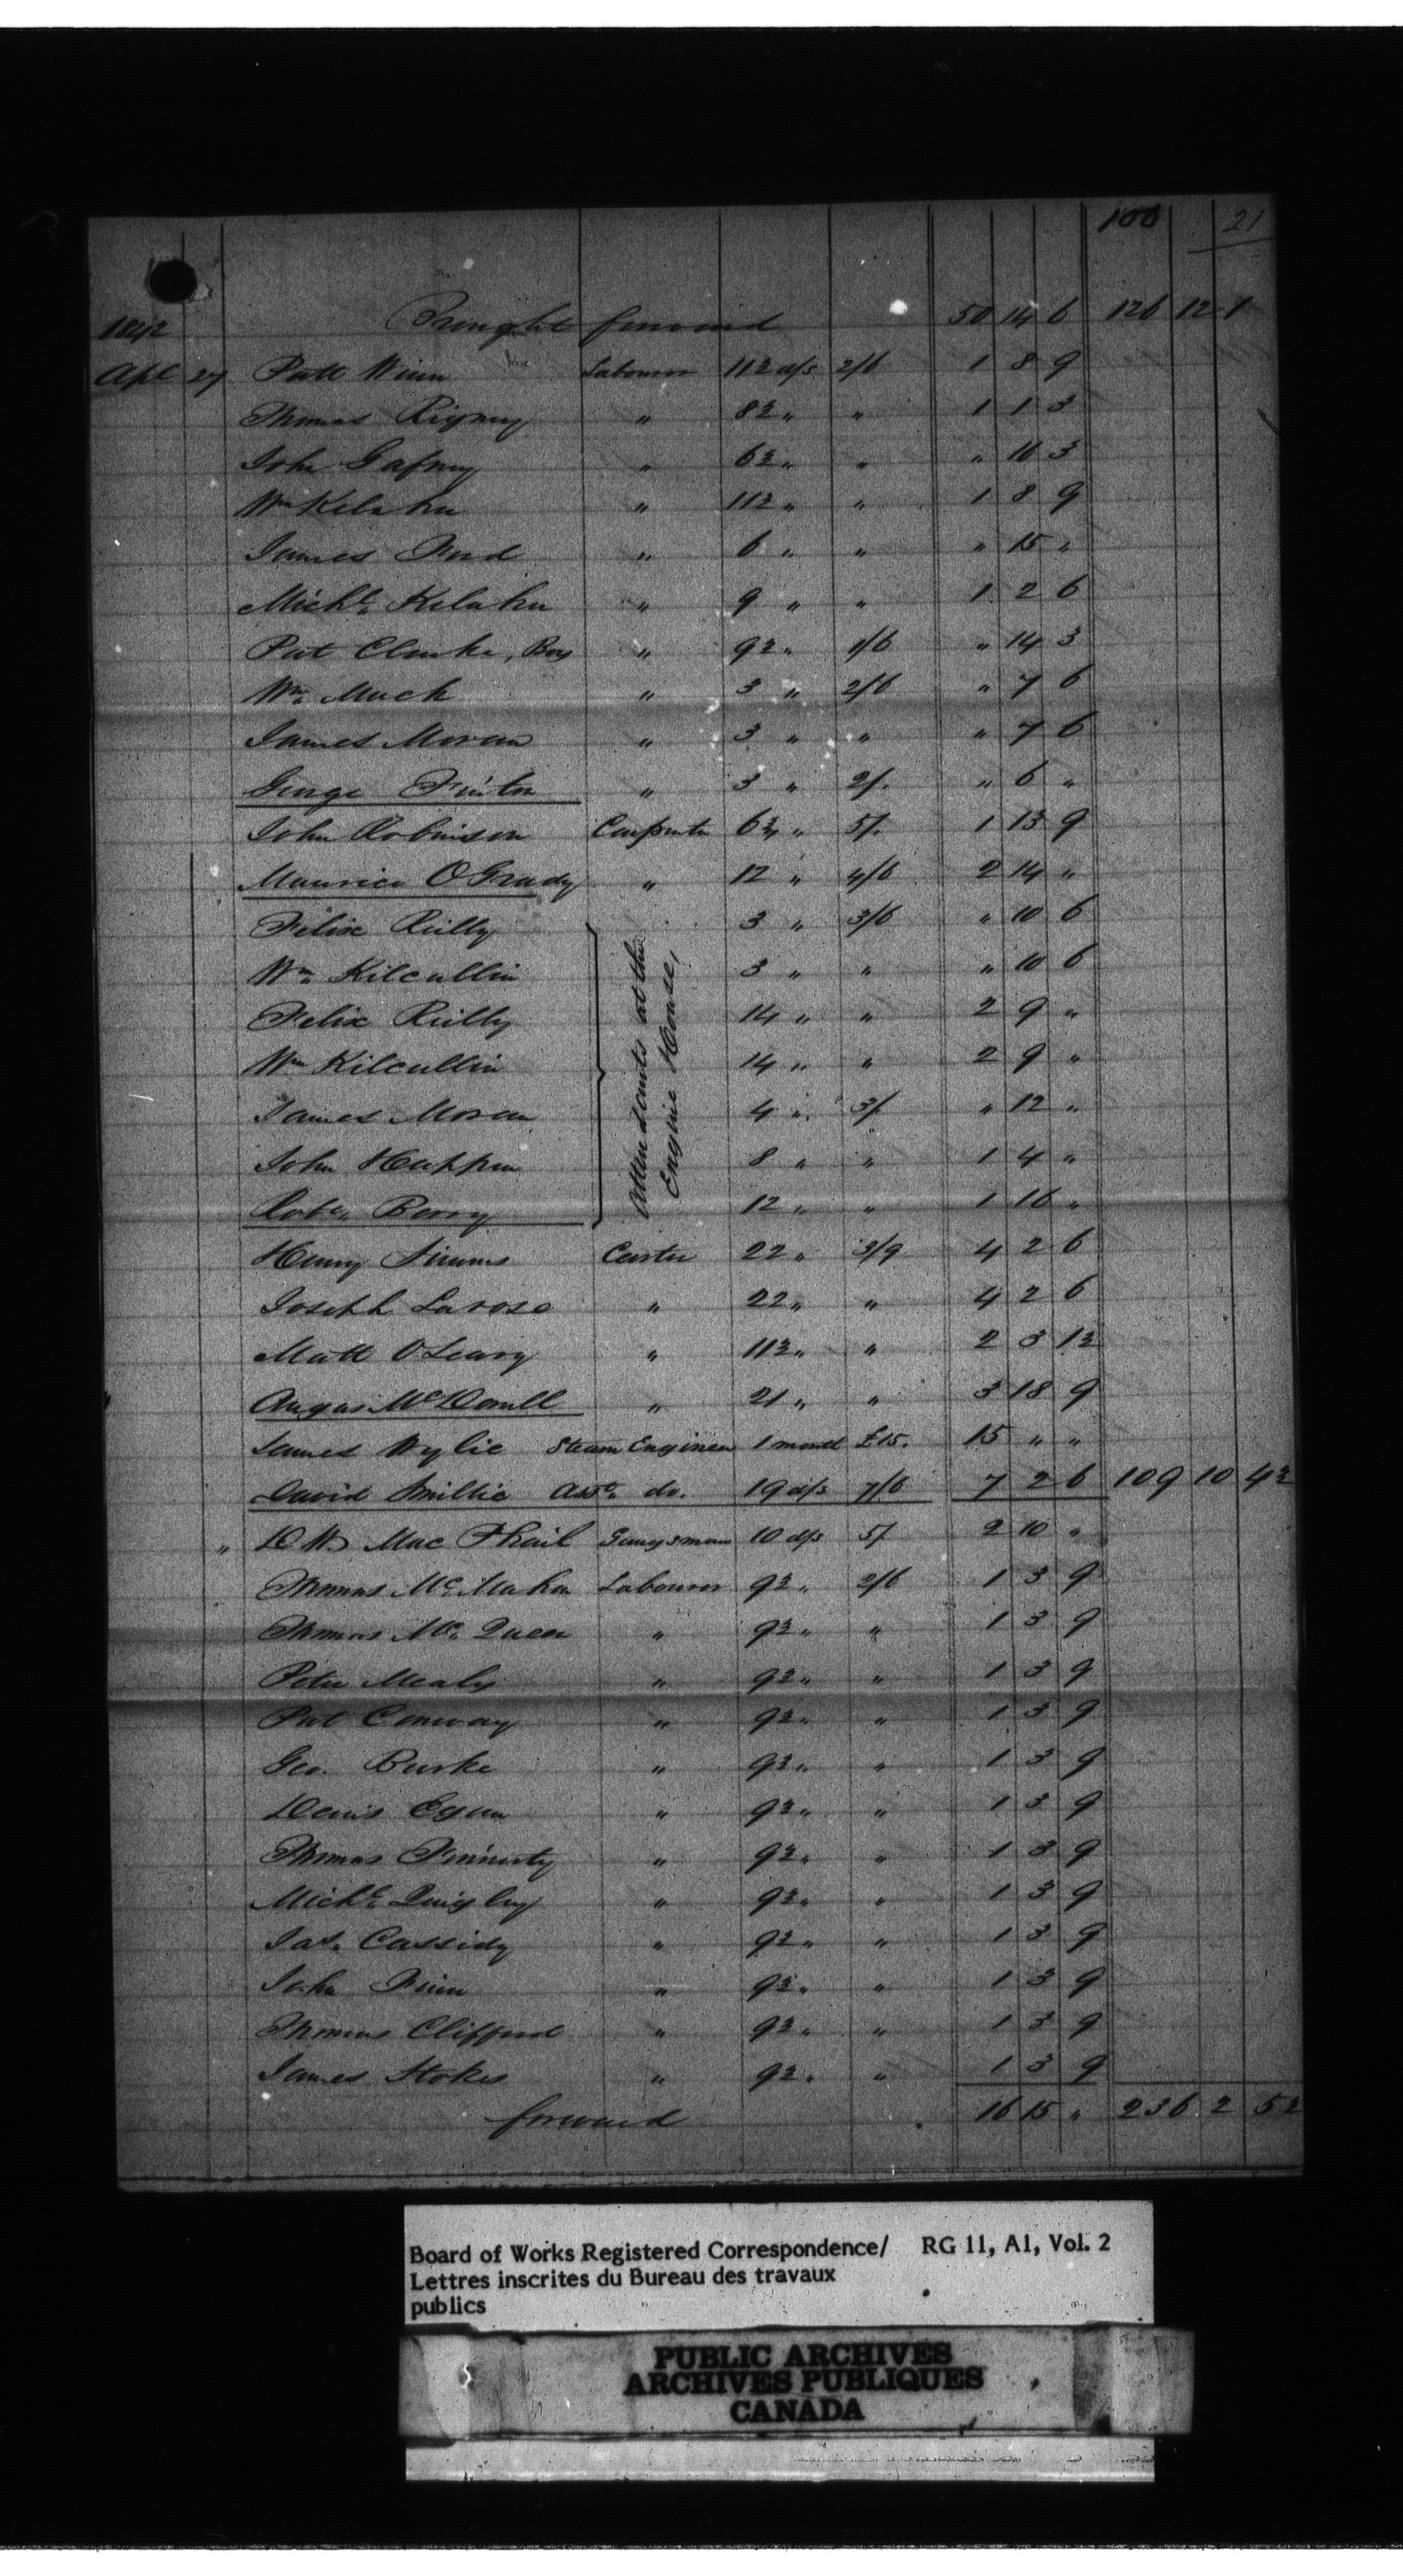 100 21
1842 Brought forward 50 14 6 126 12 1
Apl 27 Patt Winn Labourer 11½ d/s 2/6 1 8 9
Thomas Rigney " 8½ " " 1 1 3
John Gafney " 6½ " " " 16 3
Wm Kelahu " 11½ " " 1 8 9
James Ford " 6 " " " 15 "
Michl. Kelahu " 9 " " 1 2 6
Pat Clarke, Boy " 9½ " 1/6 " 14 3
Wm. Mack " 3 " 2/6 " 7 6
James Moran " 3 " " " 7 6
George Finton " 3 " 2/. " 6 "
John Robinson Carpenter 6¾ " 5/. 1 13 9
Maurice O'Grady " 12 " 4/6 2 14 "
Felix Reilly 3 " 3/6 " 10 6
Wm. Kilcullin 3 " " " 10 6
Felix Reilly 14 " " 2 9 "
Wm Kilcullin 14 " " 2 9 "
James Moran 4 " 3/. " 12 "
John Happen 8 " " 1 4 "
Robt. Berry 12 " " 1 16 "
Attendants at the Engine House,
Henry Simms Carter 22 " 3/9 4 2 6
Joseph Larose " 22 " " 4 2 6
Matt O'Leary " 11½ " " 2 3 1½
Angus McDonell " 21 " " 3 18 9
James Wylie Steam Engineer 1 month £15. 15 " "
David Smillie Asst. do. 19 d/s 7/6 7 2 6 109 10 4½
" D W MacPhail Gangsman 10 d/s 5/. 2 10 "
Thomas McMahon Labourer 9½ " 2/6 1 3 9
Thomas Mc.Queen " 9½ " " 1 3 9
Peter Mealy " 9½ " " 1 3 9
Pat Conway " 9½ " " 1 3 9
Geo. Burke " 9½ " " 1 3 9
Denis Egan " 9½ " " 1 3 9
Thomas Finnerty " 9½ " " 1 3 9
Michl. Quigley " 9½ " " 1 3 9
Jas. Cassidy " 9½ " " 1 3 9
John Finn " 9½ " " 1 3 9
Thomas Clifford " 9½ " " 1 3 9
James Stokes " 9½ " " 1 3 9
forward 16 15 " 236 2 5½
Board of Works Registered Correspondence/ RG 11, A1, Vol. 2
Lettres inscrites du Bureau des travaux
publics
PUBLIC ARCHIVES
ARCHIVES PUBLIQUES
CANADA